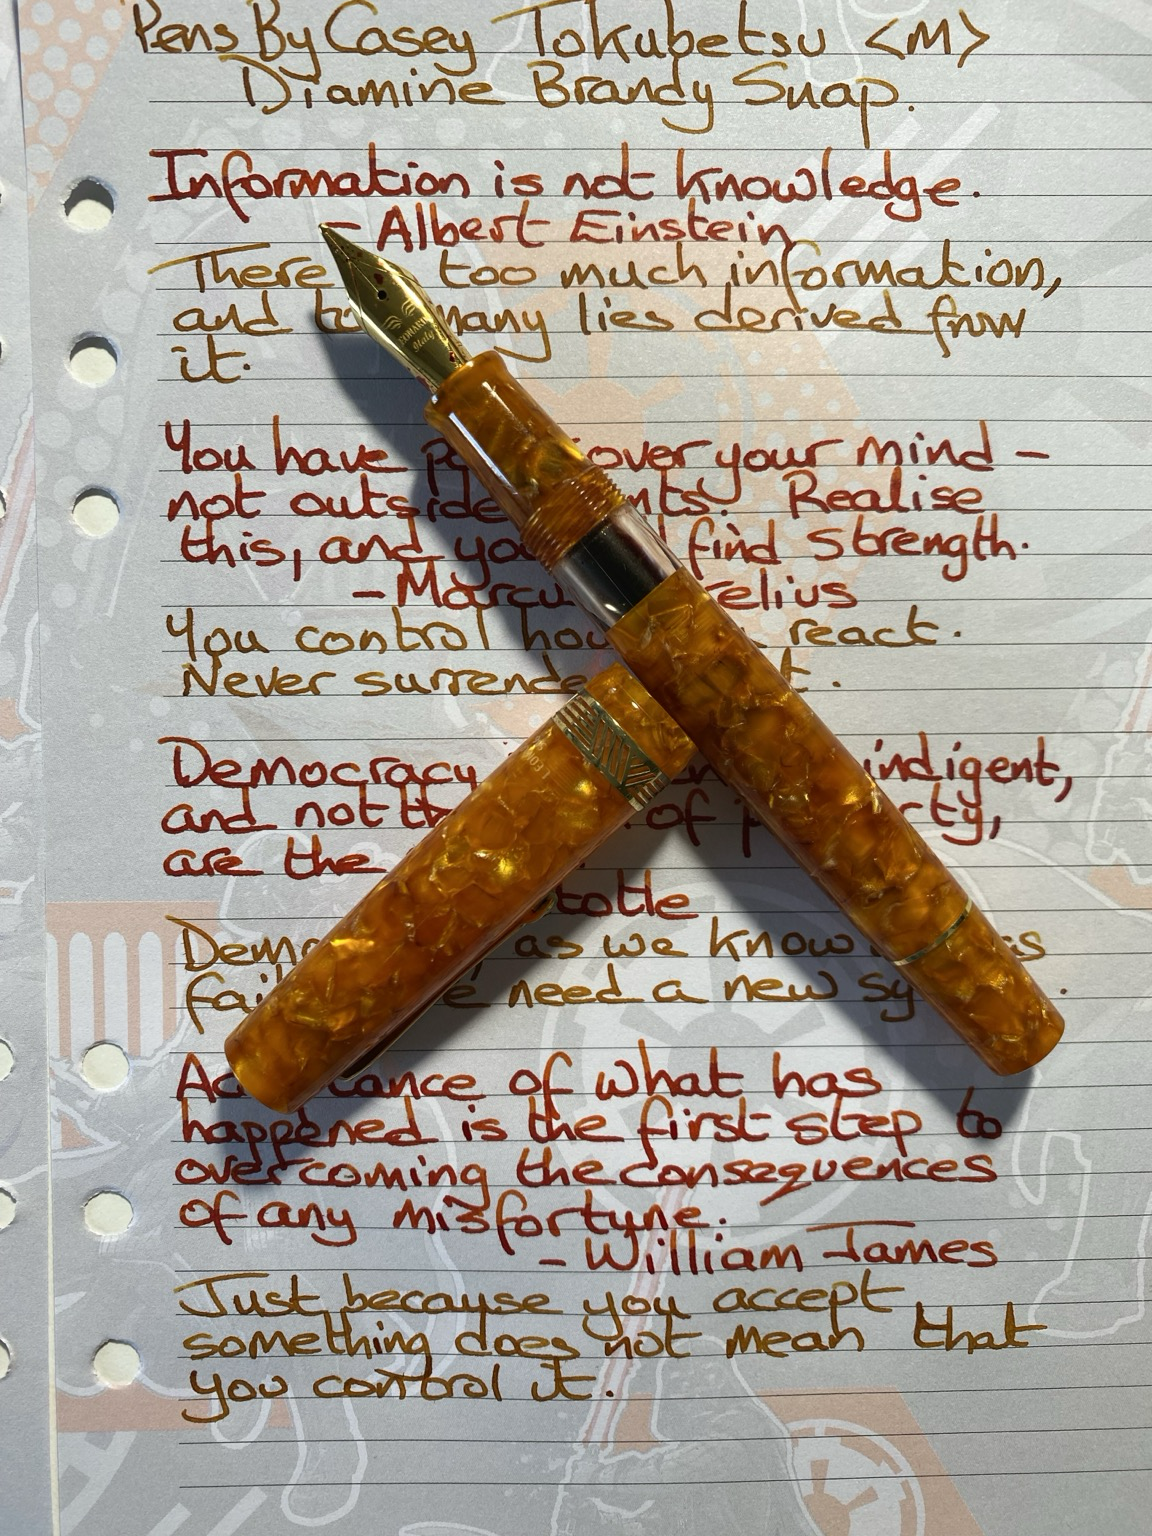 Pens By Casey Tokubetsu <M>
Diamine Brandy Snap.
Information is not knowledge.
- Albert Einstein
There too much information,
and many lies derived from
it.
You have over your mind -
not outside Realise
this, and find strength.
-
You control react.
Never
Democracy indigent,
and not of
are the
as we know
need a new
of what has
happened is the first step to
overcoming the consequences
of any misfortune.
- William James
Just because you accept
something does not mean that
you control it.
LEONARDO
Italy